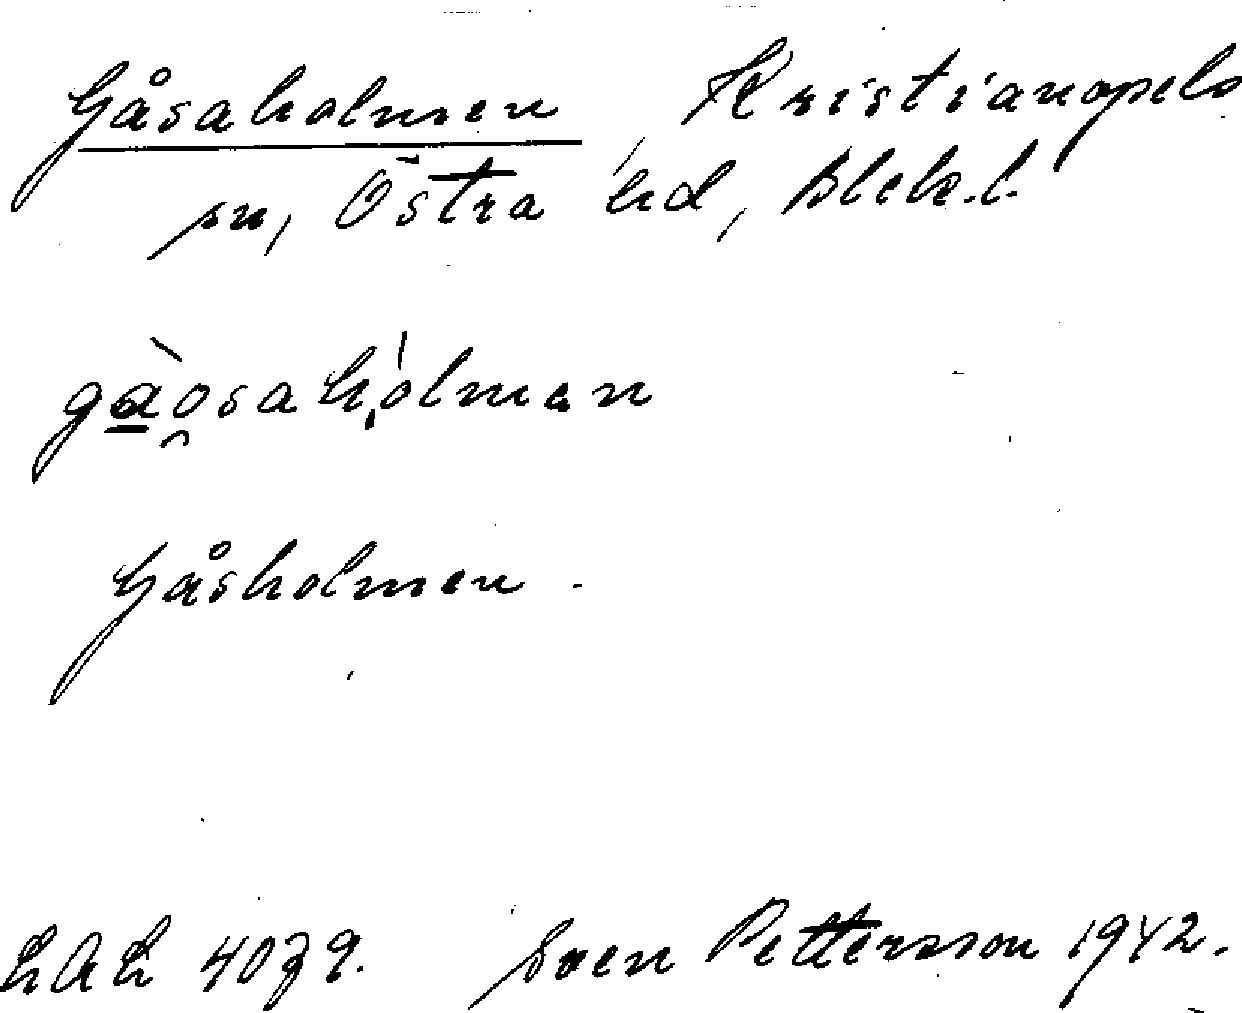 Gåsaholmen, Kristianopels
sn, Östra hd, Blek.l.
gàosahólmən
Gåsholmen.
LAL 4039. Sven Pettersson 1942.